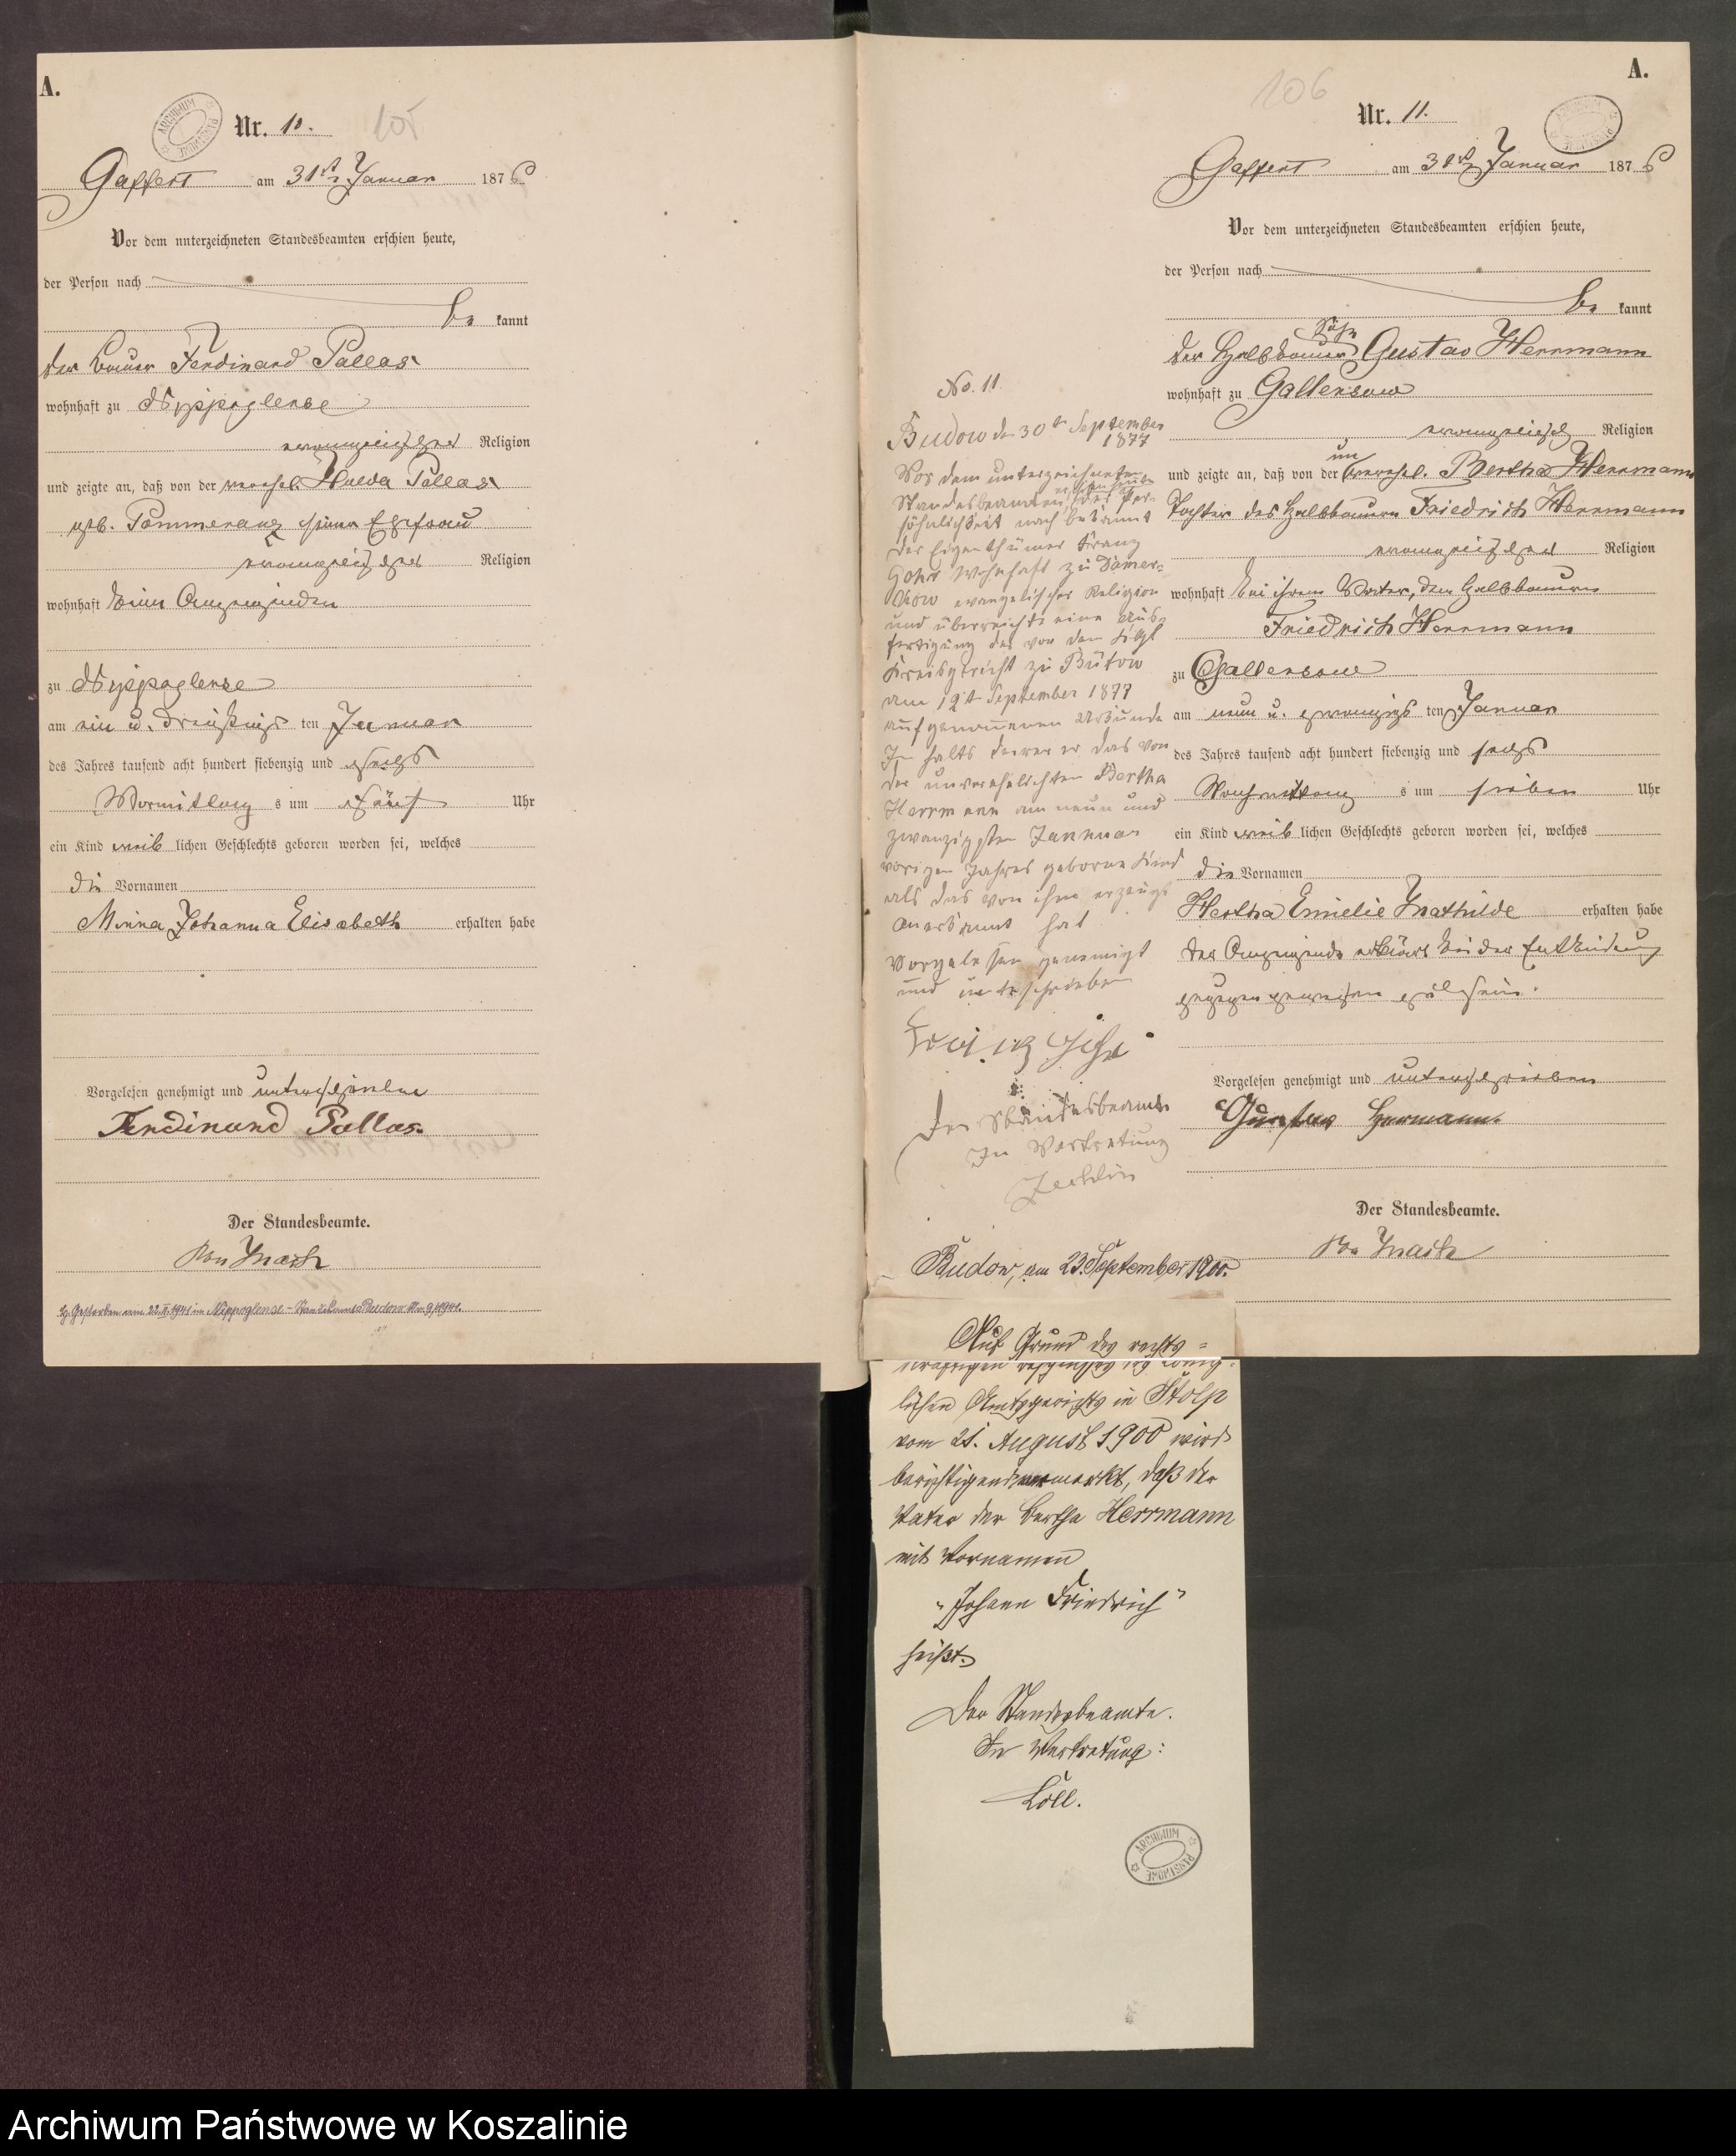 A.
Nr. 10.
105
Gaffert am 31ten Januar 1876
Vor dem unterzeichneten Standesbeamten erschien heute,
der Person nach
be kannt
der Bauer Ferdinand Pallas
wohnhaft zu Nippoglense
evangelischer Religion
und zeigte an, daß von der verehel. Hulda Pallas
geb. Pommerenz seiner Ehefrau
evangelischer Religion
wohnhaft beim Anzeigenden
zu Nippoglense
am ein u. dreißigs ten Januar
des Jahres tausend acht hundert siebenzig und sechs
Vormittag s um fünf Uhr
ein Kind weib lichen Geschlechts geboren worden sei, welches
die Vornamen
Minna Johanna Elisabeth erhalten habe
Vorgelesen genehmigt und unterschrieben
Ferdinand Pallas
Der Standesbeamte.
Gestorben am 22.II.1941 in Nippoglense - Standesamt Budow Nr. 9/1941.
A.
106
Nr. 11.
Gaffert am 31ten Januar 1876
Vor dem unterzeichneten Standesbeamten erschien heute,
der Person nach
be kannt
Sohn
der Halbbauer Gustav Herrmann
wohnhaft zu Gallensow
evangelisch Religion
un
und zeigte an, daß von der verehel. Bertha Herrmann
Tochter des Halbbauern Friedrich Herrmann
evangelischer Religion
wohnhaft bei ihrem Vater, dem Halbbauern
Friedrich Herrmann
zu Gallensow
am neun u. zwanzigs ten Januar
des Jahres tausend acht hundert siebenzig und sechs
Nachmittag s um sieben Uhr
ein Kind weib lichen Geschlechts geboren worden sei, welches
die Vornamen
Hertha Emielie Mathilde erhalten habe
der Anzeigende erklärt bei der Entbindung
zugegen gewesen zu sein.
Vorgelesen genehmigt und unterschrieben
Gustav Hermann.
Der Standesbeamte.
No. 11
Budow den 30ten September
1877
Vor dem unterzeichneten
Standesbeamten erschien heute der Per-
söhnlichkeit nach bekannt
der Eigenthümer Franz
Gohr wohnhaft zu Damer-
kow evangelischer Religion
und überreichte eine Aus-
fertigung der von dem Kgl
Kreisgericht zu Bütow
am 19t September 1877
aufgenommenen Urkunde
Inhalts deren er das von
der unverehelichten Bertha
Herrmann am neun und
zwanzigsten Januar
vorigen Jahres geborne Kind
als das von ihm erzeugt
anerkannt hat
Vorgelesen genemigt
und unterschrieben
Franz Gohr
Der Standesbeamte
In Vertretung
Budow, am 23. September 1900.
Auf Grund des rechts-
kräftigen Beschlusses des König-
lichen Amtsgerichts in Stolp
vom 21. August 1900 wird
berichtigend vermerkt, daß der
Vater der Bertha Herrmann
mit Vornamen
"Johann Friedrich"
heißt.
Der Standesbeamte.
In Vertretung:
Löll.
ARCHIWUM PAŃSTWOWE
Archiwum Państwowe w Koszalinie